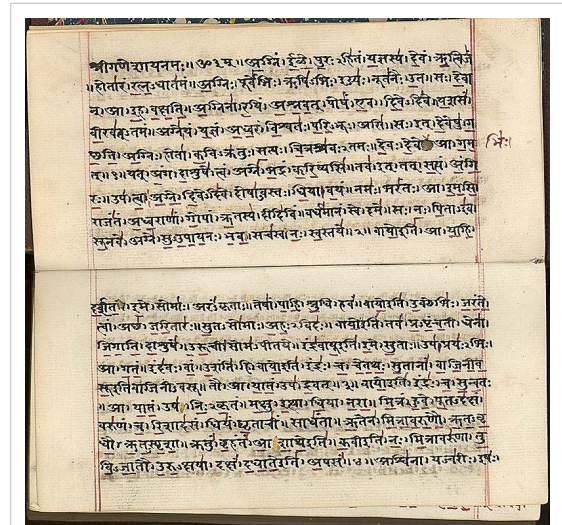 श्रीगणेशायनमः॥ॐ३म्॥अग्निं।ईळे।पुरःऽहितं।यज्ञस्य।देवं।ऋत्विजं
॥होतारं।रत्नऽधातमं॥अग्निः।पूर्वेभिः।ऋषिऽभिः।ईड्यः।नूतनैः।उत॥सः।देवा
न्।आ।इह।वक्षति॥अग्निना।रयिं।अश्नवत्।पोषं।एव।दिवेऽदिवे॥यशसं
वीरवत्ऽतमं॥अग्ने।यं।यज्ञं।अध्वरं।विश्वतः।परिऽभूः।असि॥सः।इत्।देवेषु।ग
च्छति॥अग्निः।होता।कविऽक्रतुः।सत्यः।चित्रश्रवःऽतमः॥देवः।देवे।आ।गम
भिः।
त्॥१॥यत्।अंग।दाशुषे।त्वं।अग्ने।भद्रं।करिष्यसि॥तव।इत्।तत्।सत्यं।अंगि
रः॥उप।त्वा।अग्ने।दिवेऽदिवे।दोषाऽवस्तः।धिया।वयं॥नमः।भरंतः।आ।इमसि
राजंतं।अध्वराणां।गोपां।ऋतस्य।दीदिविं॥वर्धमानं।स्वे।दमे॥सः।नः।पिताऽइव
सूनवे।अग्ने।सुऽउपायनः।भव॥सचस्व।नः।स्वस्तये॥२॥वायोइति।आ।याहि।
दर्शत।इमे।सोमाः।अरंऽकृताः॥तेषां।पाहि।श्रुधि।हवं॥वायोइति।उक्थेभिः।जरंते
त्वां।अच्छ।जरितारः॥सुतऽसोमाः।अहःऽविदः॥वायोइति।तव।प्रऽपृंचती।धेना।
जिगाति।दाशुषे॥उरूची।सोमऽपीतये॥इंद्रवायूइति।इमे।सुताः॥उप।प्रयःऽभिः।
आ।गतं॥इंदवः।वां।उशंति।हि॥वायोइति।इंद्रः।च।चेतथः।सुतानां।वाजिनीव
सूइतिवाजिनीऽवसू॥तौ।आ।यातं।उप।द्रवत्॥३॥वायोइति।इंद्रः।च।सुन्वतः
॥आ।यातं।उप।निःऽकृतं॥मक्षु।इत्था।धिया।नरा॥मित्रं।हुवे।पूतऽदक्षं
वरुणं।च।रिशादसं॥धियं।घृताचीं।साधंता॥ऋतेन।मित्रावरुणौ।ऋतऽवृ
धौ।ऋतऽस्पृशा॥क्रतुं।बृहंतं।आशाथेइति॥कवीइति।नः।मित्रावरुणा।तु
विऽजातौ।उरुऽक्षया॥दक्षं।दधातेइति।अपसं॥४॥अश्विना।यज्वरीः।इषः।